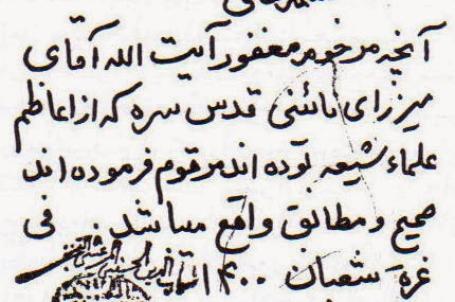 آنچه مرحوم مغفور آیت الله آقای
میرزای نائنی قدس سره که از اعاظم
علماء شیعه بوده اند مرقوم فرموده اند
صحیح و مطابق واقع میباشد. فی
غرة شعبان ۱۴۰۰